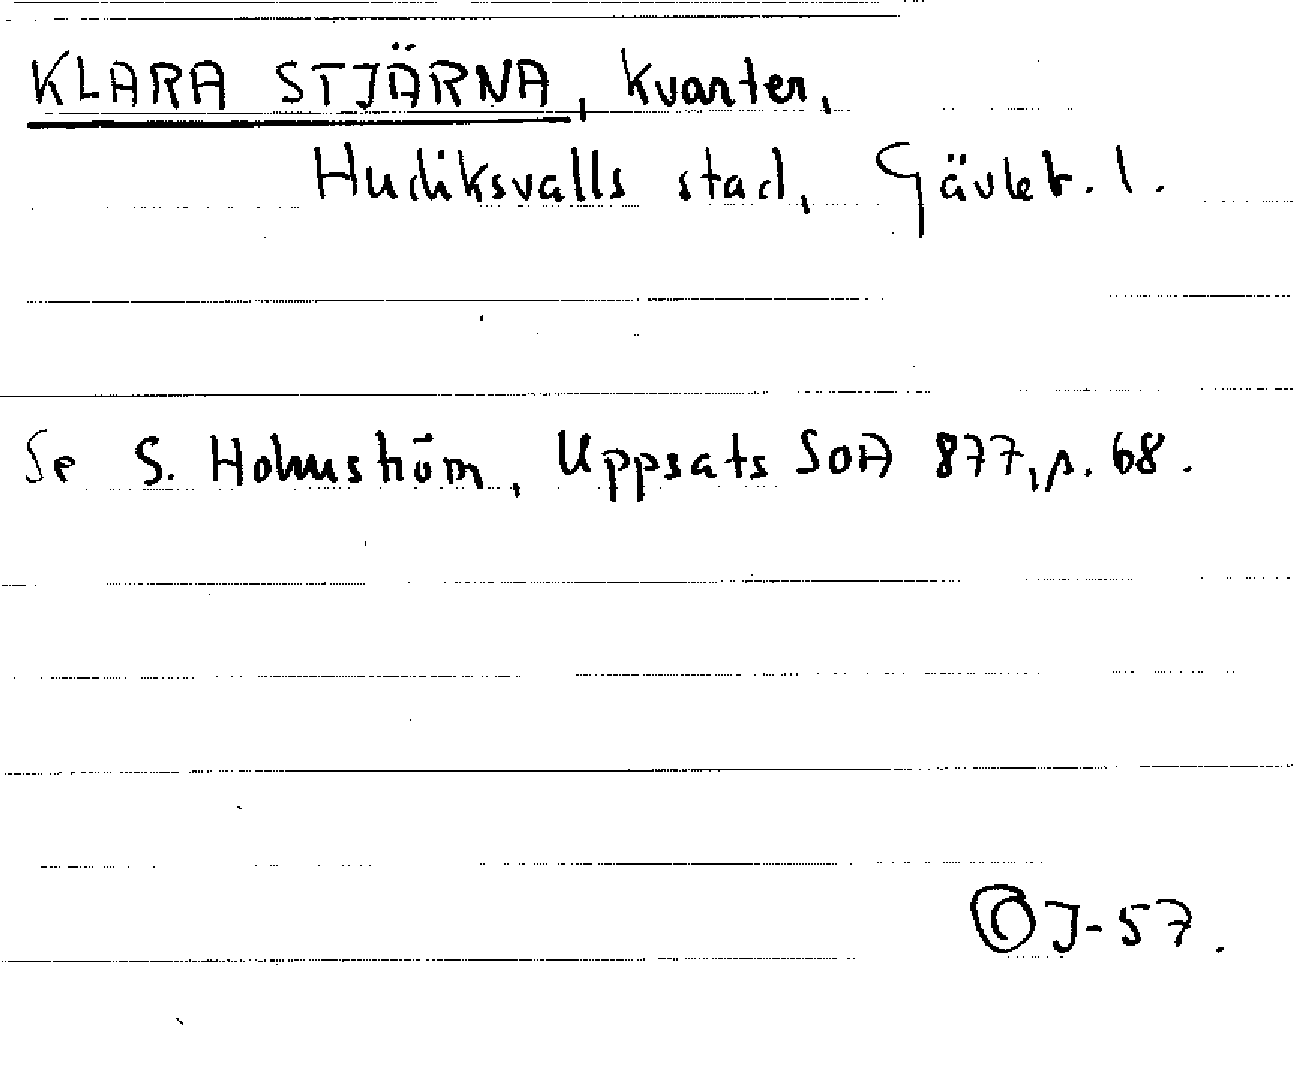 KLARA STJÄRNA, kvarter,
Hudiksvalls stad, Gävleb. l.
Se S. Holmström, Uppsats SOA 877, s. 68.
©J-57.